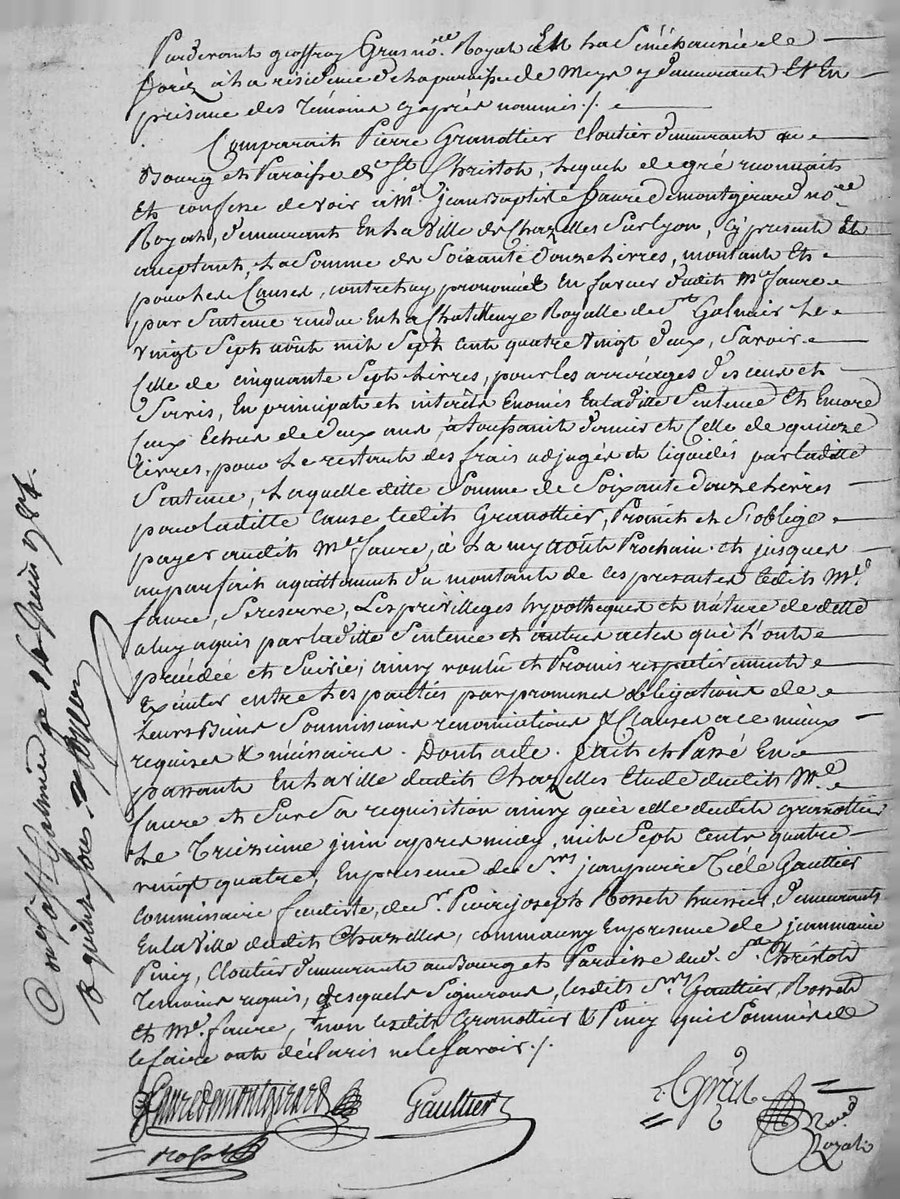 Pardevant geoffray Gras no.re Royal En La Sénéchaussée de
forèz a La résidence de La paroisse de Meys y demeurant Et En
présence des témoins cy après nommés ./.
Comparait Pierre Granottier Cloutier demeurant au
Bourg et Paroisse de St Christoh, Lequel de gré reconnait
Et confesse devoir à Me jean Baptiste faure de montgirard no.re
Royal, demeurant En La Ville de Chazelles sur Lyon, cy present Et
acceptant, La Somme de Soixante douze Livres, montant Et
pour Les Causes, contre Luy prononcées En faveur dudit Me faure
par Sentence rendue En La Chatellenye Royalle de St Galmier Le
vingt Sept août mil Sept cent quatre vingt deux, Savoir
Celle de cinquante Sept Livres, pour les arrérages des cens et
Servis, En principal et intérêts Enoncés En laditte Sentence Et Encore
Ceux Echus de deux ans, à toussaint dernier et Celle de quinze
Livres, pour Le restant des frais adjugés et liquidés par laditte
Sentence, Laquelle ditte Somme de Soixante douze Livres
pour laditte cause Ledit Granottier, Promet et S'oblige
payer audit Me faure, à La my août Prochain et jusques
au parfait aquittement du montant de ces presentes Ledit Me
faure, Se reserve, Les privilleges hypotheques et nature de dette
a luy aquis par laditte Sentence et autres actes qui L'ont
précédée et Suivie; ainsy voulu et Promis respectivement
Exécuter entre Les parties par promesses obligations de
Leurs Biens Soummissions renonciations & Clauses a ce mieux
requises & nécessaires. Dont acte. fait et Passé En
passant En La ville dudit Chazelles Etude dudit Me
faure et Sur Sa requisition ainsy que celle dudit granottier
Le Treizieme juin apres midy, mil Sept cents quatre
vingt quatre, En presence de Srs jean pierre Gaultier
commissaire feudiste, de Sr Pierre joseph Rosset huissier, demeurants
En la Ville dudit Chazelles, comm'aussy En presence de jean marie
Piney, Cloutier demeurant au Bourg et Paroisse dud. St Christoh
temoins requis, desquels Signeront, lesdits Srs Gaultier, Rosset
et Me faure, & non lesdits Granottier & Piney qui Sommés de
le faire ont déclaré ne le savoir ./.
faure de montgirard Gaultier Gras
Rosset Nore Royal
Con.lé à St Galmier ce 16 juin 1784.
R quinze sous